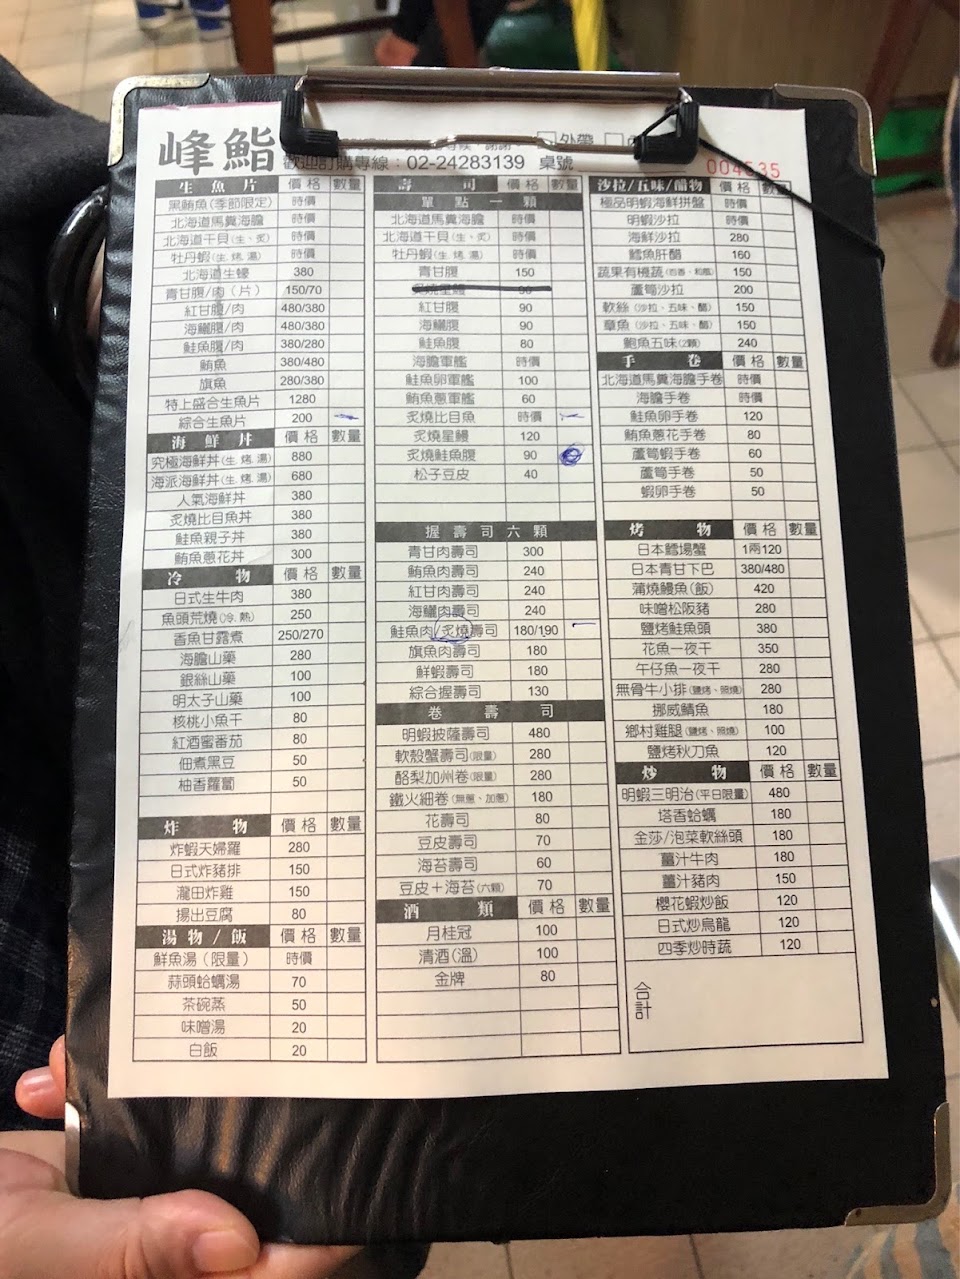 峰鮨
外帶
歡迎訂購專線：02-24283139 桌號
004535
生魚片 價格 數量
黑鮪魚(季節限定) 時價
北海道馬糞海膽 時價
北海道干貝(生、炙) 時價
牡丹蝦(生.烤.湯) 時價
北海道生蠔 380
青甘腹/肉(片) 150/70
紅甘腹/肉 480/380
海鱺腹/肉 480/380
鮭魚腹/肉 380/280
鮪魚 380/480
旗魚 280/380
特上盛合生魚片 1280
綜合生魚片 200
海鮮丼 價格 數量
究極海鮮丼(生.烤.湯) 880
海派海鮮丼(生.烤.湯) 680
人氣海鮮丼 380
炙燒比目魚丼 380
鮭魚親子丼 380
鮪魚蔥花丼 300
冷物 價格 數量
日式生牛肉 380
魚頭荒燒(冷.熱) 250
香魚甘露煮 250/270
海膽山藥 280
銀絲山藥 100
明太子山藥 100
核桃小魚干 80
紅酒蜜番茄 80
佃煮黑豆 50
柚香蘿蔔 50
炸物 價格 數量
炸蝦天婦羅 280
日式炸豬排 150
瀧田炸雞 150
揚出豆腐 80
湯物/飯 價格 數量
鮮魚湯(限量) 時價
蒜頭蛤蠣湯 70
茶碗蒸 50
味噌湯 20
白飯 20
壽司 價格 數量
單點一顆
北海道馬糞海膽 時價
北海道干貝(生、炙) 時價
牡丹蝦(生.烤.湯) 時價
青甘腹 150
炙燒星鰻 90
紅甘腹 90
海鱺腹 90
鮭魚腹 80
海膽軍艦 時價
鮭魚卵軍艦 100
鮪魚蔥軍艦 60
炙燒比目魚 時價
炙燒星鰻 120
炙燒鮭魚腹 90
松子豆皮 40
握壽司六顆
青甘肉壽司 300
鮪魚肉壽司 240
紅甘肉壽司 240
海鱺肉壽司 240
鮭魚肉/炙燒壽司 180/190
旗魚肉壽司 180
鮮蝦壽司 180
綜合握壽司 130
卷壽司
明蝦披薩壽司 480
軟殼蟹壽司(限量) 280
酪梨加州卷(限量) 280
鐵火細卷(無蔥、加蔥) 180
花壽司 80
豆皮壽司 70
海苔壽司 60
豆皮＋海苔(六顆) 70
酒類 價格 數量
月桂冠 100
清酒(溫) 100
金牌 80
沙拉/五味/醋物 價格 數量
極品明蝦海鮮拼盤 時價
明蝦沙拉 時價
海鮮沙拉 280
鱈魚肝醋 160
蔬果有機蔬(百香、和風) 150
蘆筍沙拉 200
軟絲(沙拉、五味、醋) 150
章魚(沙拉、五味、醋) 150
鮑魚五味(2顆) 240
手卷 價格 數量
北海道馬糞海膽手卷 時價
海膽手卷 時價
鮭魚卵手卷 120
鮪魚蔥花手卷 80
蘆筍蝦手卷 60
蘆筍手卷 50
蝦卵手卷 50
烤物 價格 數量
日本鱈場蟹 1兩120
日本青甘下巴 380/480
蒲燒鰻魚(飯) 420
味噌松阪豬 280
鹽烤鮭魚頭 380
花魚一夜干 350
午仔魚一夜干 280
無骨牛小排(鹽烤、照燒) 280
挪威鯖魚 180
鄉村雞腿(鹽烤、照燒) 100
鹽烤秋刀魚 120
炒物 價格 數量
明蝦三明治(平日限量) 480
塔香蛤蠣 180
金莎/泡菜軟絲頭 180
薑汁牛肉 180
薑汁豬肉 150
櫻花蝦炒飯 120
日式炒烏龍 120
四季炒時蔬 120
合計